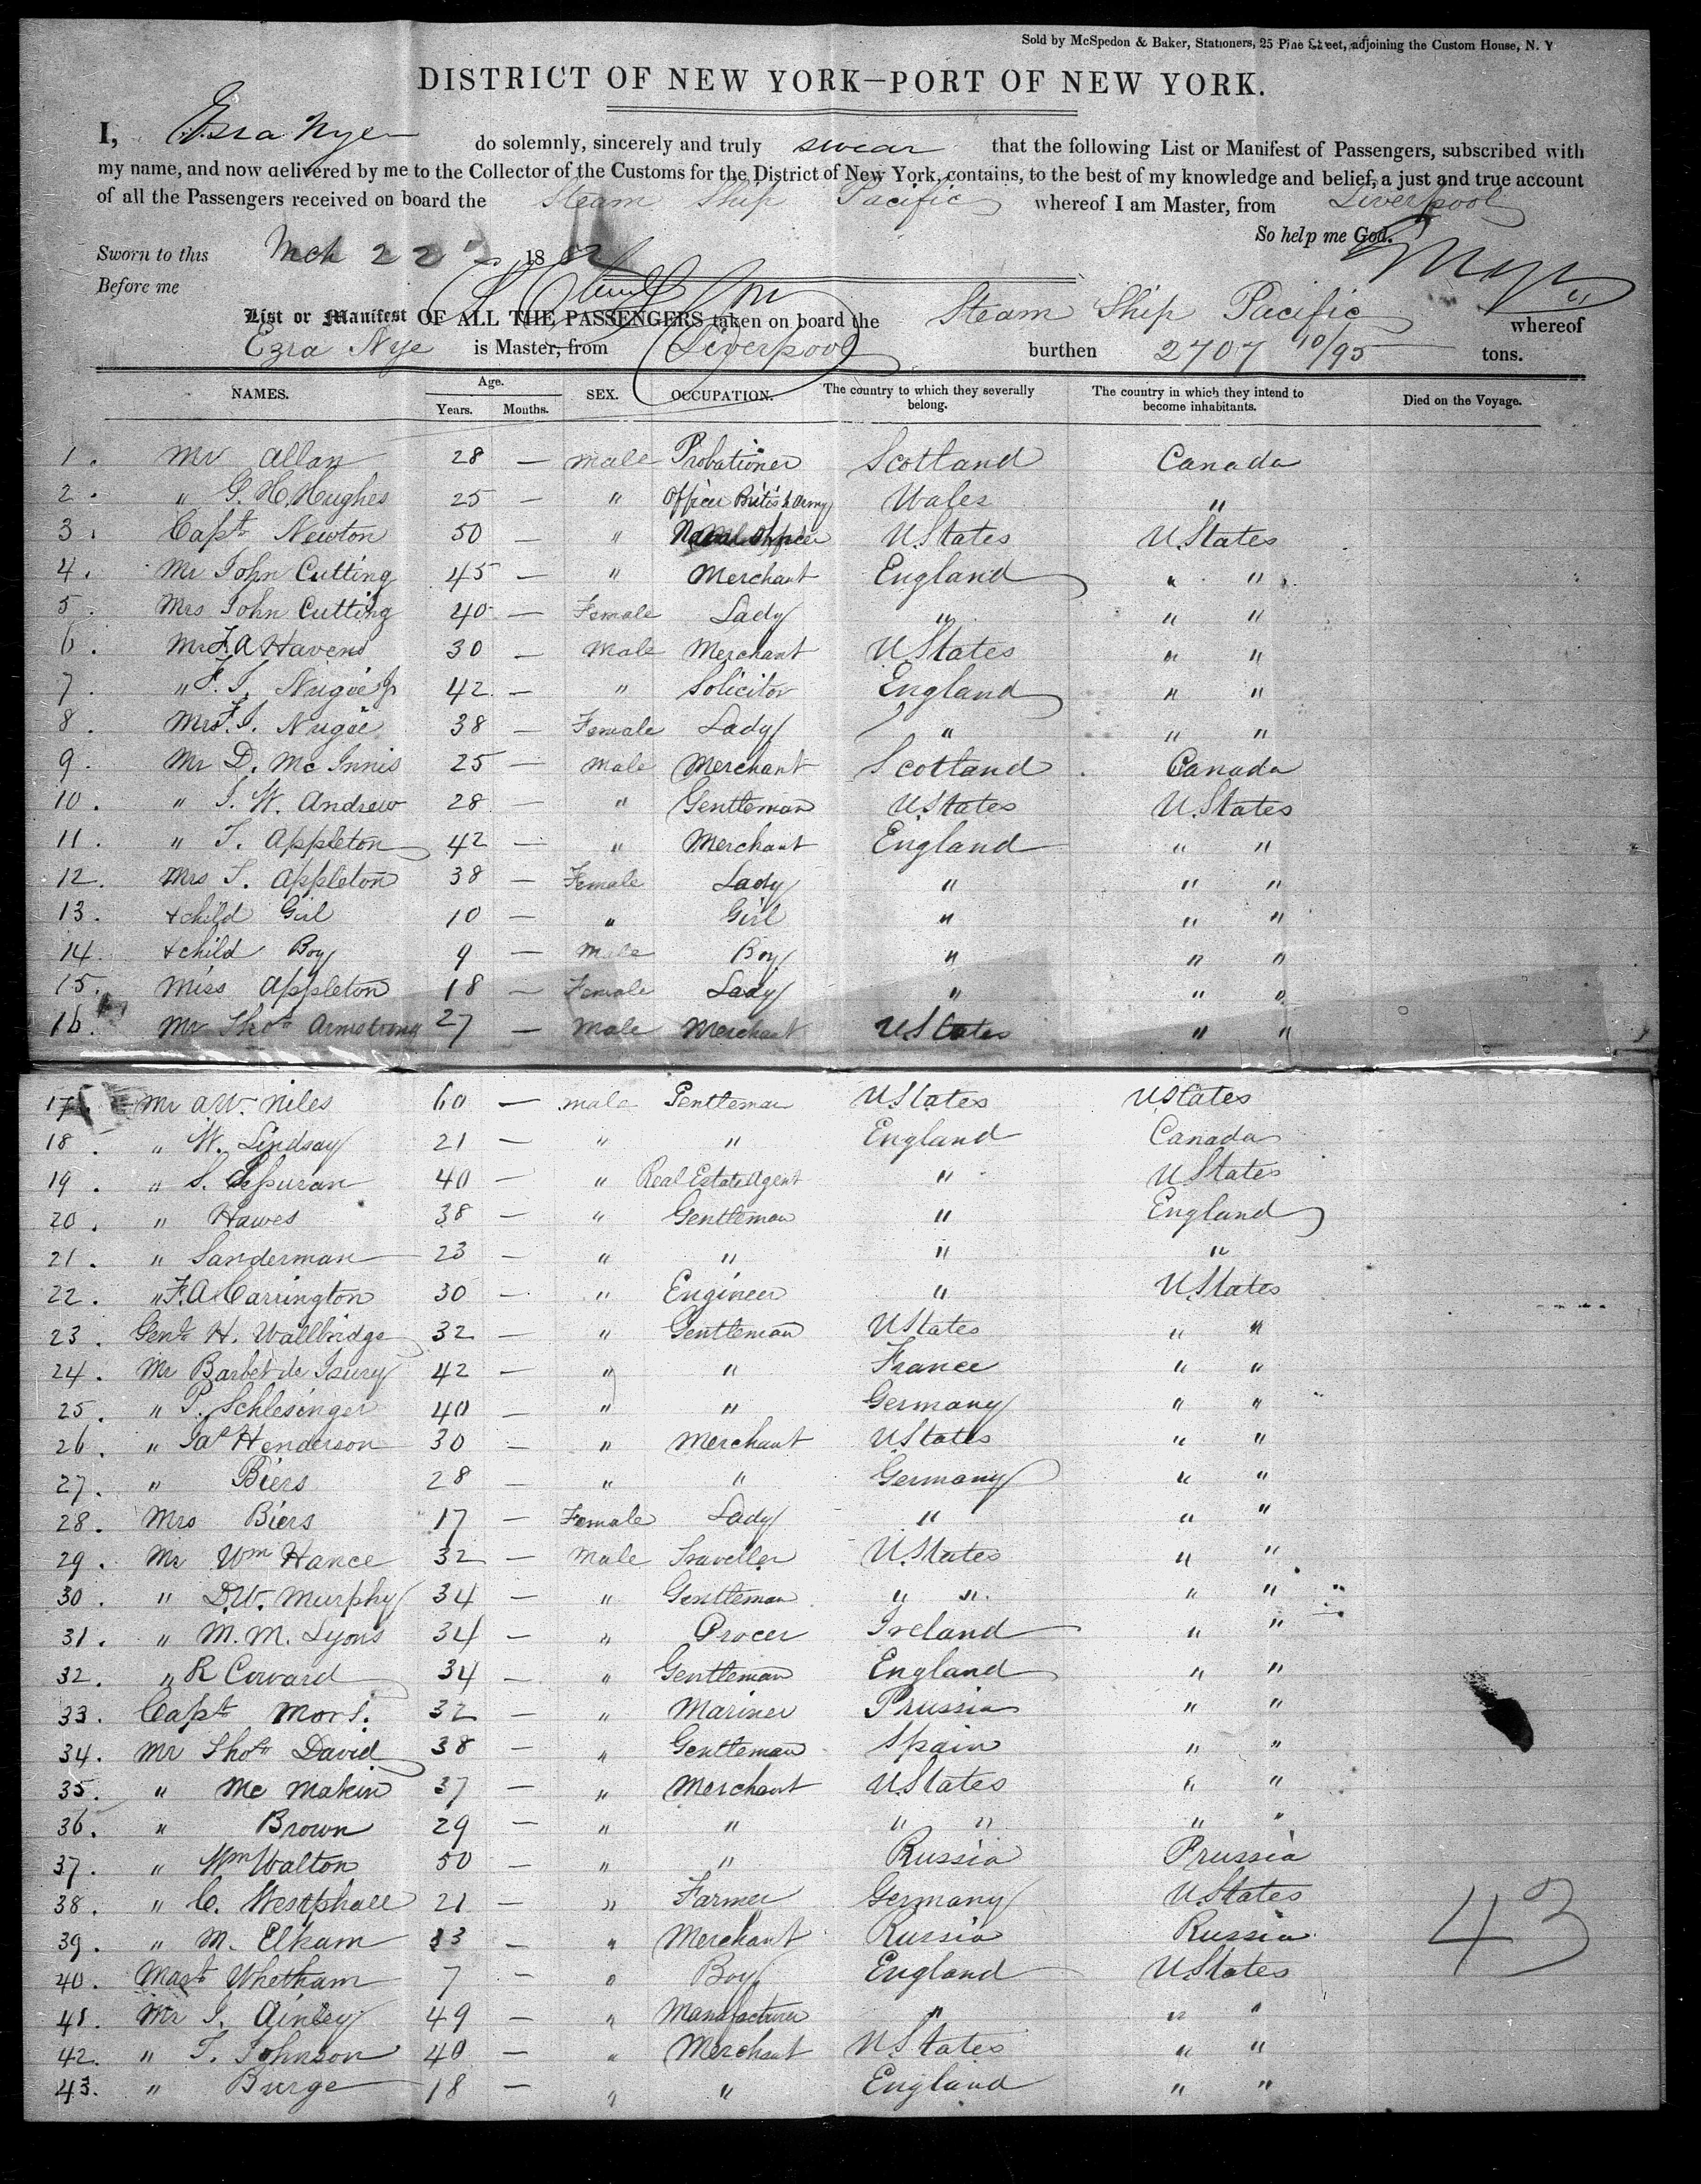 Sold by McSpedon & Baker, Stationers, 25 Pine Street, adjoining the Custom House, N. Y
DISTRICT OF NEW YORK—PORT OF NEW YORK.
I, Ezra Nye do solemnly, sincerely and truly swear that the following List or Manifest of Passengers, subscribed with
my name, and now delivered by me to the Collector of the Customs for the District of New York, contains, to the best of my knowledge and belief, a just and true account
of all the Passengers received on board the Steam Ship Pacific whereof I am Master, from Liverpool
So help me God.
Sworn to this Mch 22 18 E Nye
Before me
List or Manifest OF ALL THE PASSENGERS taken on board the Steam Ship Pacific whereof
Ezra Nye is Master, from Liverpool burthen 2707 10/95 tons.
NAMES. Age. Years. Months. SEX. OCCUPATION. The country to which they severally belong. The country in which they intend to become inhabitants. Died on the Voyage.
1. Mr Allan 28 — male Probationer Scotland Canada
2. " G. H. Hughes 25 — " Officer British Army Wales "
3. Capt Newton 50 — " Naval Officer U.States U.States
4. Mr John Cutting 45 — " Merchant England " "
5. Mrs John Cutting 40 — Female Lady " " "
6. Mr F. A Havens 30 — Male Merchant U States " "
7. " F. J. Nugée Jr 42 — " Solicitor England " "
8. Mrs F. J. Nugée 38 — Female Lady " " "
9. Mr D. McInnis 25 — male Merchant Scotland Canada
10. " J. W. Andrew 28 — " Gentleman U States U.States
11. " T. Appleton 42 — " Merchant England " "
12. Mrs T. Appleton 38 — Female Lady " " "
13. & child Girl 10 — " Girl " " "
14. & child Boy 9 — Male Boy " " "
15. Miss Appleton 18 — Female Lady " " "
16. Mr Thos Armstrong 27 — male Merchant U States " "
17. Mr A. W. Niles 60 — male Gentleman U States U States
18. " W. Lindsay 21 — " " England Canada
19. " S. 40 — " Real Estate Agent " U States
20. " Hawes 38 — " Gentleman " England
21. " Sanderman 23 — " " " "
22. " F. A Carrington 30 — " Engineer " U States
23. Genl H. Wallbridge 32 — " Gentleman U States " "
24. Mr Barbet de 42 — " " France " "
25. " P. Schlesinger 40 — " " Germany " "
26. " Jas Henderson 30 — " Merchant U States " "
27. " Biers 28 — " " Germany " "
28. Mrs Biers 17 — Female Lady " " "
29. Mr Wm Hance 32 — male Traveller U States " "
30. " D. W. Murphy 34 — " Gentleman " " " "
31. " M. M. Lyons 34 — " Grocer Ireland " "
32. " R Coward 34 — " Gentleman England " "
33. Capt 32 — " Mariner Prussia " "
34. Mr Thos David 38 — " Gentleman Spain " "
35. " McMakin 37 — " Merchant U States " "
36. " Brown 29 — " " " " " "
37. " Wm Walton 50 — " " Russia Prussia
38. " C. Westphall 21 — " Farmer Germany U States
39. " M. Elkam 33 — " Merchant Russia Russia
40. Mastr Whetham 7 — " Boy England U States
41. Mr J. Ainley 49 — " Manufacturer " " "
42. " T. Johnson 40 — " Merchant U States " "
43. " Burge 18 — " " England " "
43